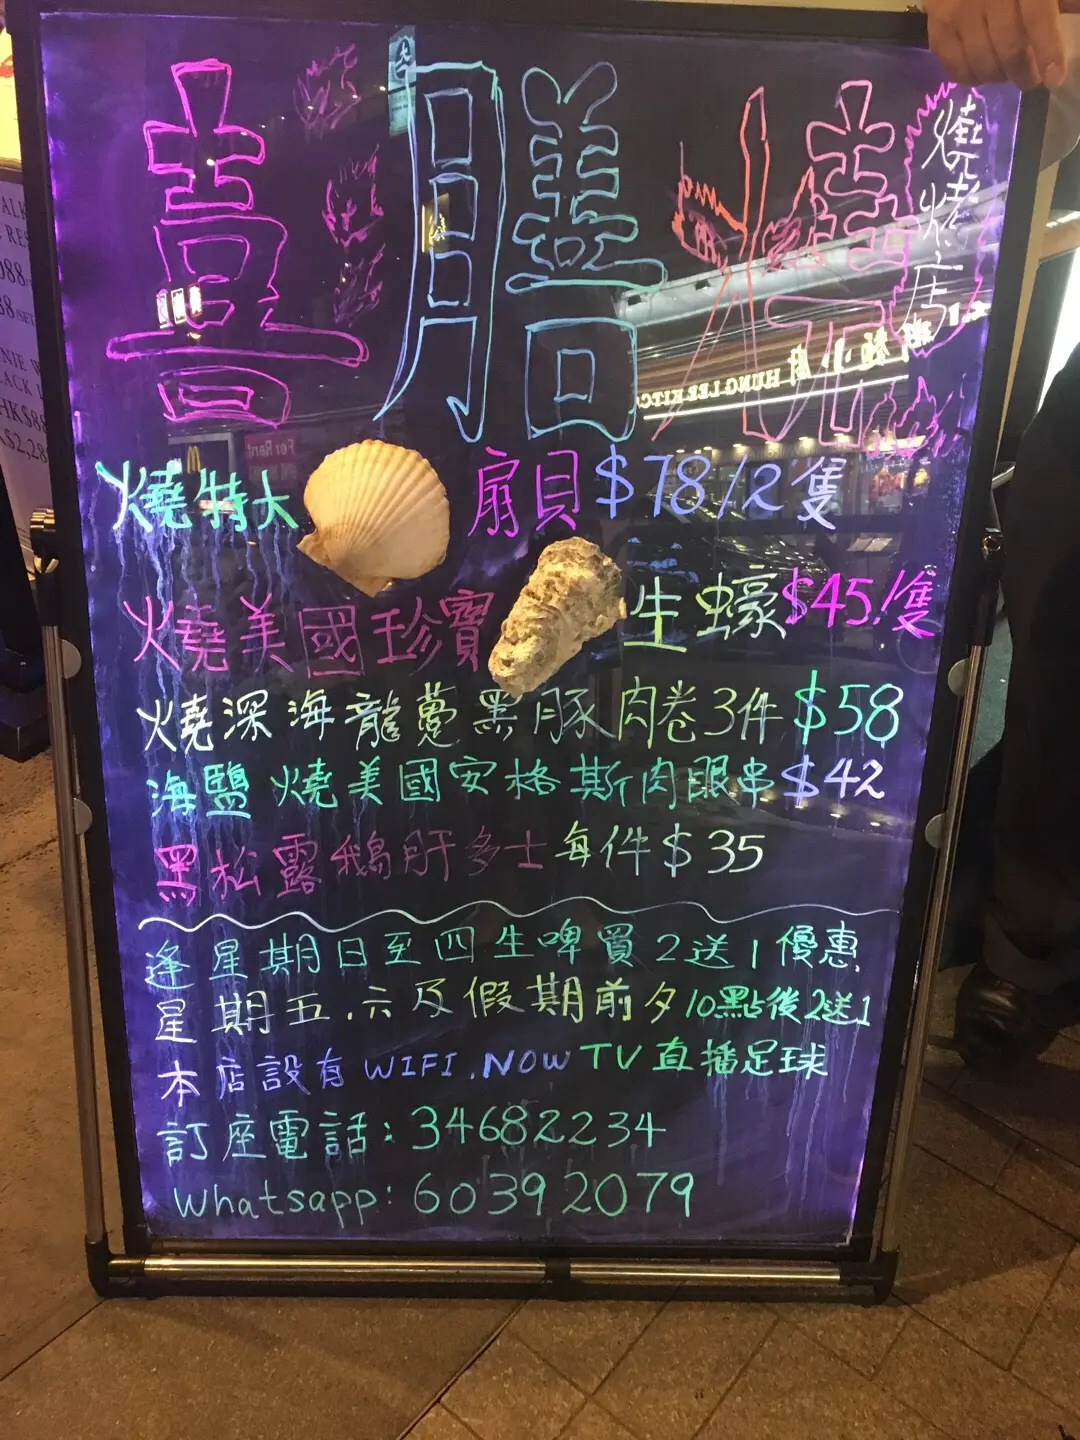 喜膳燒
燒烤店
燒特大扇貝$78/2隻
燒美國珍寶生蠔$45/隻
燒深海龍躉黑豚肉卷3件$58
海鹽燒美國安格斯肉眼串$42
黑松露鵝肝多士每件$35
逢星期日至四生啤買2送1優惠
星期五.六及假期前夕10點後2送1
本店設有WIFI.NOW TV直播足球
訂座電話:34682234
Whatsapp:60392079
For Rent
HUNG LEE KITC